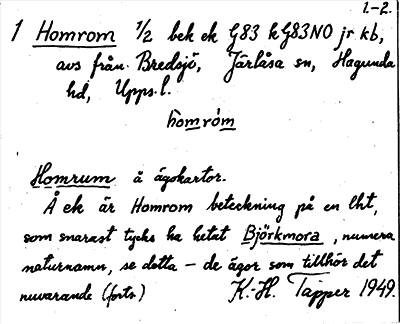 1.-2.
1 Homrom 1/2 bek ek G83 k G83NO jr kb,
avs från Bredsjö, Järlåsa sn, Hagunda
hd, Upps. l.
hòmróm
Homrum å ägokartor.
Å ek är Homrom beteckning på en lht,
som snarast tycks ha hetat Björkmora, numera
naturnamn, se detta – de ägor som tillhör det
nuvarande (forts)
K.-H. Tapper 1949.